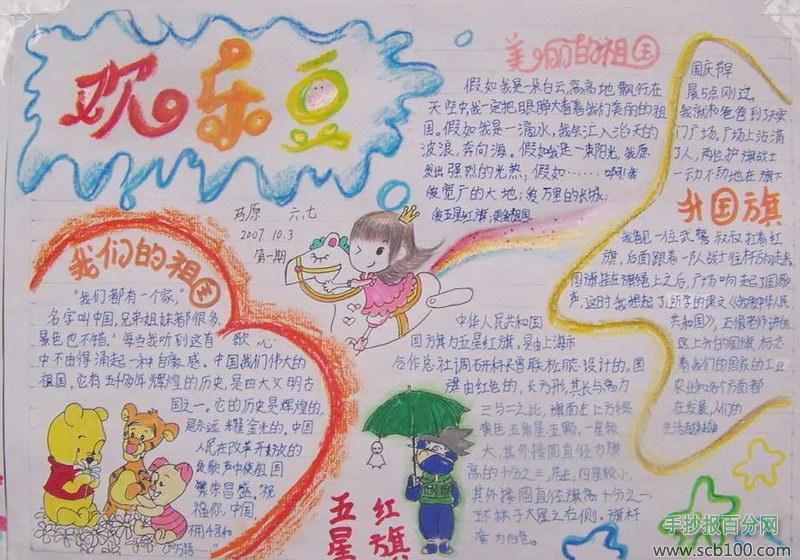 欢乐豆
美丽的祖国
假如我是一朵白云,高高地飘行在
天空中我一定把眼睁大看着我们美丽的祖
国。假如我是一滴水,我会汇入滔天的
波浪,奔向海。假如我是一束阳光,我愿
发出强烈的光热;假如……啊!爱
爱宽广的大地;爱万里的长城;
爱五星红旗;
国庆节早
晨5点刚过,
我就和爸爸到了天安
门广场。广场上站满
了人,两位护旗战士
一动不动地在旗下
升国旗
我看见一位武警叔叔扛着红
旗,后面跟着一队战士往杆方向走去
国旗挂在旗绳上之后,广场响起了国歌
声,这时我想起了,所学的课文《
共和国》,
这上升的国旗,标志
着我们的国家的工业
农业和各个方面都
在发展,人们的
马原 六.七
2007.10.3
第一期
我们的祖国
"我们都有一个家,
名字叫中国,兄弟姐妹都很多,
景色也不错。"每当我听到这首歌,心
中不由得涌起一种自豪感。中国我们伟大的
祖国,它有五千多年辉煌的历史,是四大文明古
国之一。它的历史是辉煌的,
是永远光的。中国
人民在改革开放的
凯歌声中使祖国
繁荣昌盛。祝
福你,中国
中华人民共和国
国旗为五星红旗,是由上海市
合作总社调研科长曾联松同志设计的。国
旗由红色的,长方形,其长与高为
三与二之比,旗面左上方缀
黄色五角星五颗,一星较
大,其外接圆直径为旗
高的十分之三,居左,四星较小,
其外接圆直径旗高十分之一
环拱于大星之右侧。旗杆
套为白色。
五星红旗
手抄报百分网
www.scb100.com